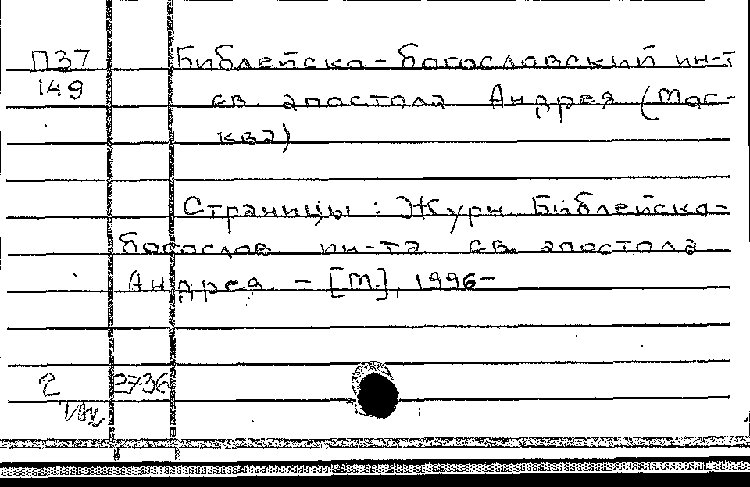 П37 Библейско-богословский ин-т
149 св. апостола Андрея (Мос-
ква)
Страницы : Журн. Библейско-
богослов. ин-та св. апостола
Андрея. - [М.], 1996-
2 2736